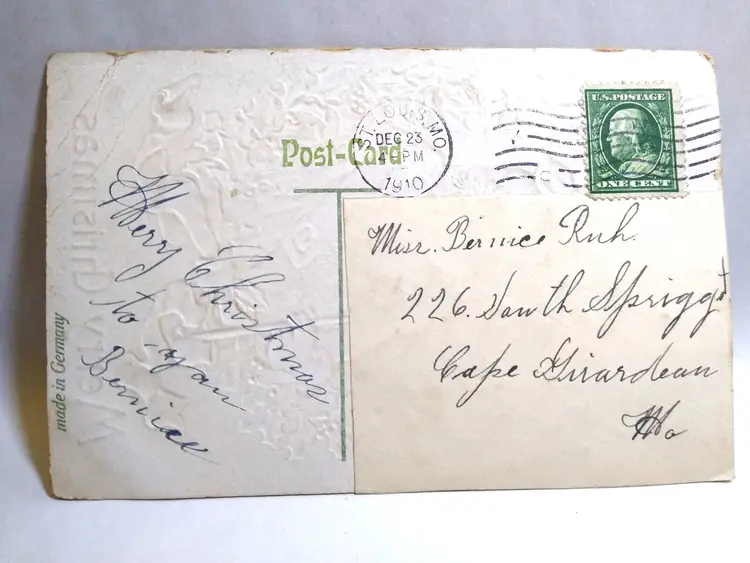 Post-Card
ST. LOUIS, MO.
DEC 23
4 PM
1910
U.S. POSTAGE
ONE CENT
Merry Christmas
to you
Bernice
Miss. Bernice Ruh.
226. South Sprigg
Cape Girardeau
Mo
made in Germany
Merry Christmas